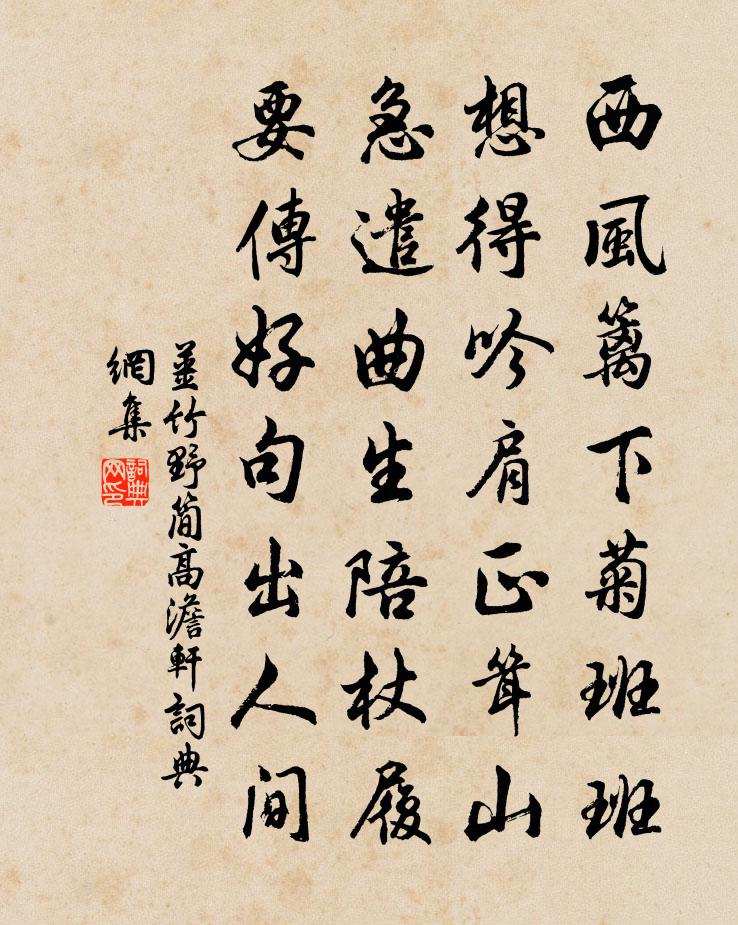 西風篱下菊班班
想得吟肩正耸山
急遣曲生陪杖履
要傳好句出人間
薑竹野簡高澹軒詞典
網集
詞典
网印